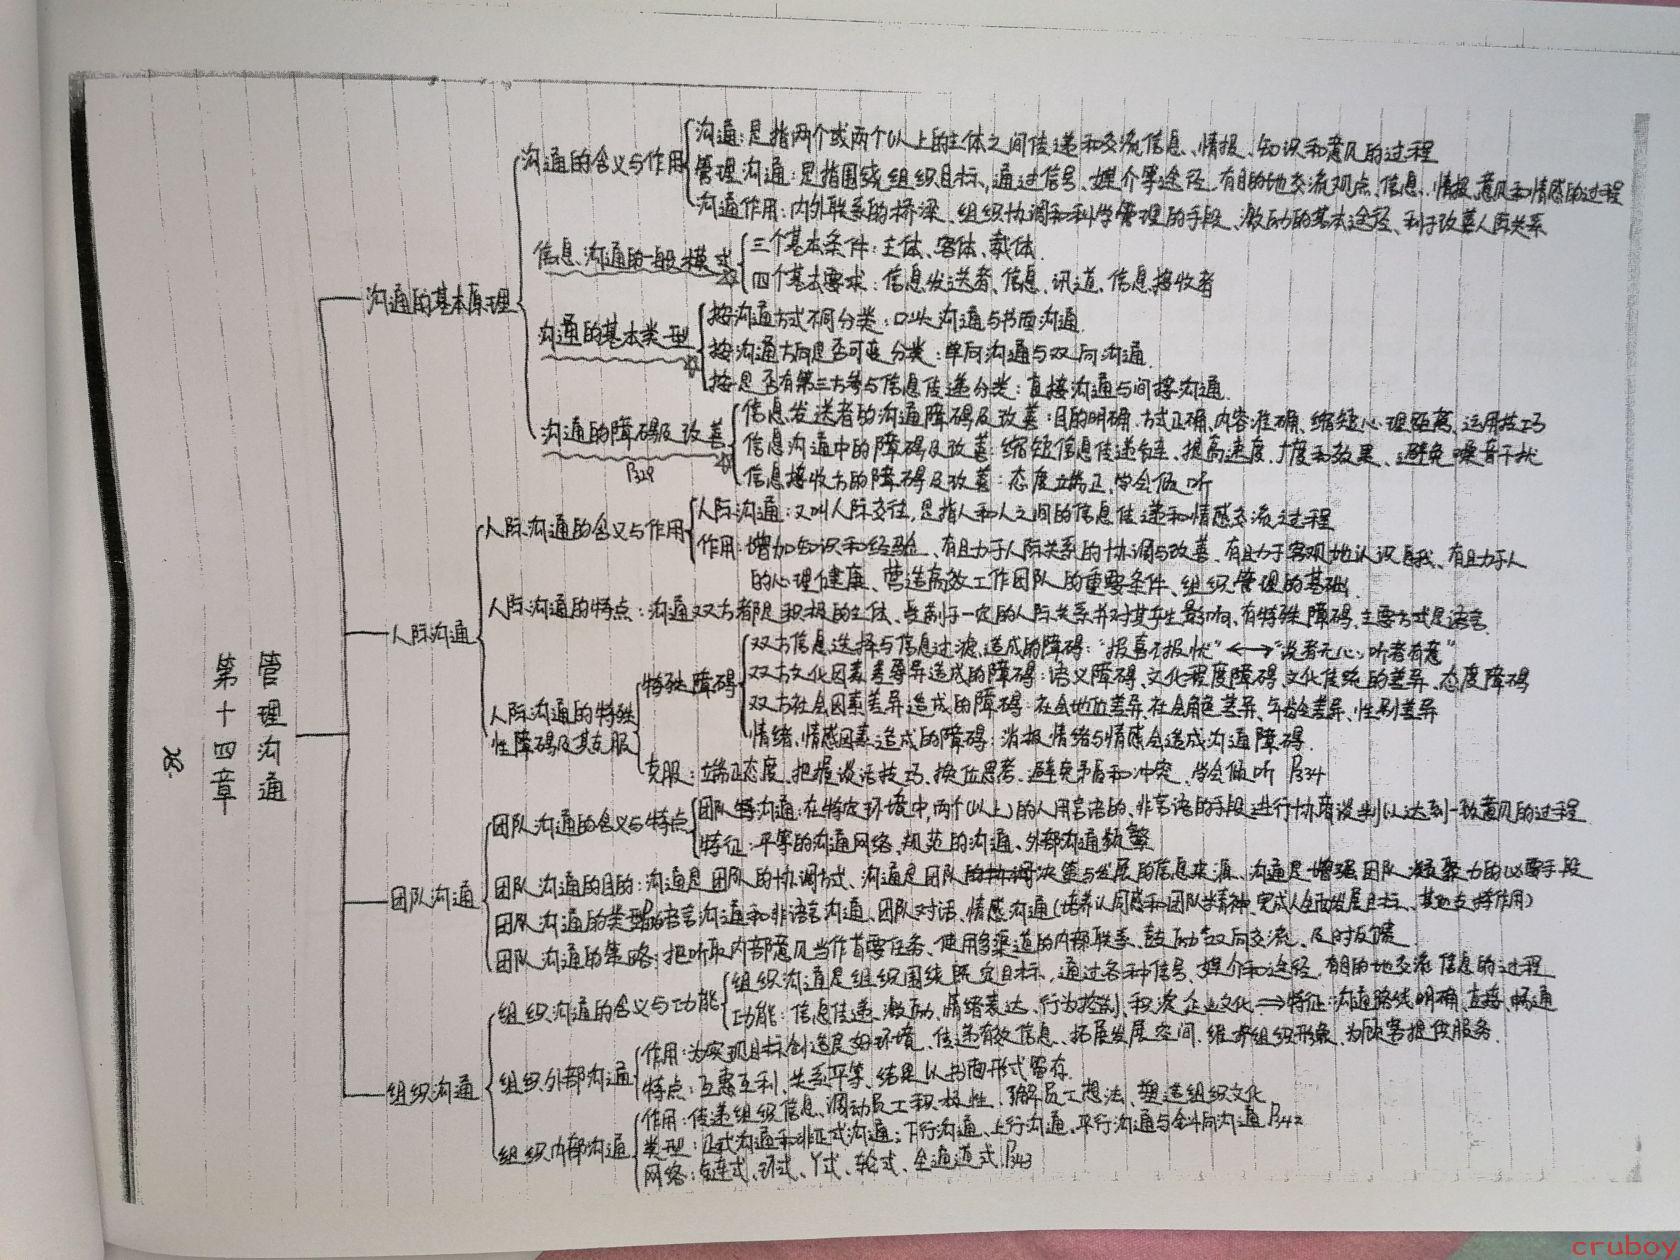 第十四章
管理沟通
28
沟通的基本原理
沟通的含义与作用
沟通:是指两个或两个以上的主体之间传递和交流信息、情报、知识和意见的过程
管理沟通:是指围绕组织目标,通过信号、媒介等途径,有目的地交流观点、信息、情报、意见和情感的过程
沟通作用:内外联系的桥梁、组织协调和科学管理的手段、激励的基本途径、利于改善人际关系
信息沟通的一般模式
三个基本条件:主体、客体、载体.
四个基本要求:信息发送者、信息、讯道、信息接收者
沟通的基本类型
按沟通方式不同分类:口头沟通与书面沟通.
按沟通方向是否可变分类:单向沟通与双向沟通.
按是否有第三方参与信息传递分类:直接沟通与间接沟通.
沟通的障碍及改善
P329
信息发送者的沟通障碍及改善:目的明确、方式正确、内容准确、缩短心理距离、运用技巧
信息沟通中的障碍及改善:缩短信息传递链、提高速度、广度和效果、避免噪音干扰
信息接收方的障碍及改善:态度端正、学会倾听
人际沟通
人际沟通的含义与作用
人际沟通:又叫人际交往,是指人和人之间的信息传递和情感交流过程
作用:增加知识和经验、有助于人际关系的协调与改善、有助于客观地认识自我、有助于人
的心理健康、营造高效工作团队的重要条件、组织管理的基础.
人际沟通的特点:沟通双方都是积极的主体、受制于一定的人际关系并对其产生影响、有特殊障碍、主要方式是语言.
人际沟通的特殊
性障碍及其克服
特殊障碍
双方信息选择与信息过滤造成的障碍:“报喜不报忧”←→“说者无心,听者有意”
双方文化因素差异造成的障碍:语义障碍、文化程度障碍、文化传统的差异、态度障碍
双方社会因素差异造成的障碍:社会地位差异、社会角色差异、年龄差异、性别差异
情绪、情感因素造成的障碍:消极情绪与情感会造成沟通障碍.
克服:端正态度、把握谈话技巧、换位思考、避免矛盾和冲突、学会倾听 P334
团队沟通
团队沟通的含义与特点
团队沟通:在特定环境中,两个(以上)的人用言语的、非言语的手段进行协商谈判以达到一致意见的过程
特征:平等的沟通网络、规范的沟通、外部沟通频繁
团队沟通的目的:沟通是团队的协调方式、沟通是团队决策与发展的信息来源、沟通是增强团队凝聚力的必要手段
团队沟通的类型:语言沟通和非语言沟通、团队对话、情感沟通(培养认同感和团队精神、完成人全面发展目标、其他支持作用)
团队沟通的策略:把听取内部意见当作首要任务、使用多渠道的内部联系、鼓励双向交流、及时反馈
组织沟通
组织沟通的含义与功能
组织沟通是组织围绕既定目标,通过各种信号、媒介和途径,有目的地交流信息的过程
功能:信息传递、激励、情绪表达、行为控制、积淀企业文化⇒特征:沟通路线明确、直接、畅通
组织外部沟通
作用:为实现目标创造良好环境、传递有效信息、拓展发展空间、维护组织形象、为顾客提供服务.
特点:互惠互利、关系平等、结果以书面形式留存.
组织内部沟通
作用:传递组织信息、调动员工积极性、了解员工想法、塑造组织文化
类型:正式沟通和非正式沟通;下行沟通、上行沟通、平行沟通与斜向沟通 P342
网络:链式、环式、Y式、轮式、全通道式 P343
cruboy